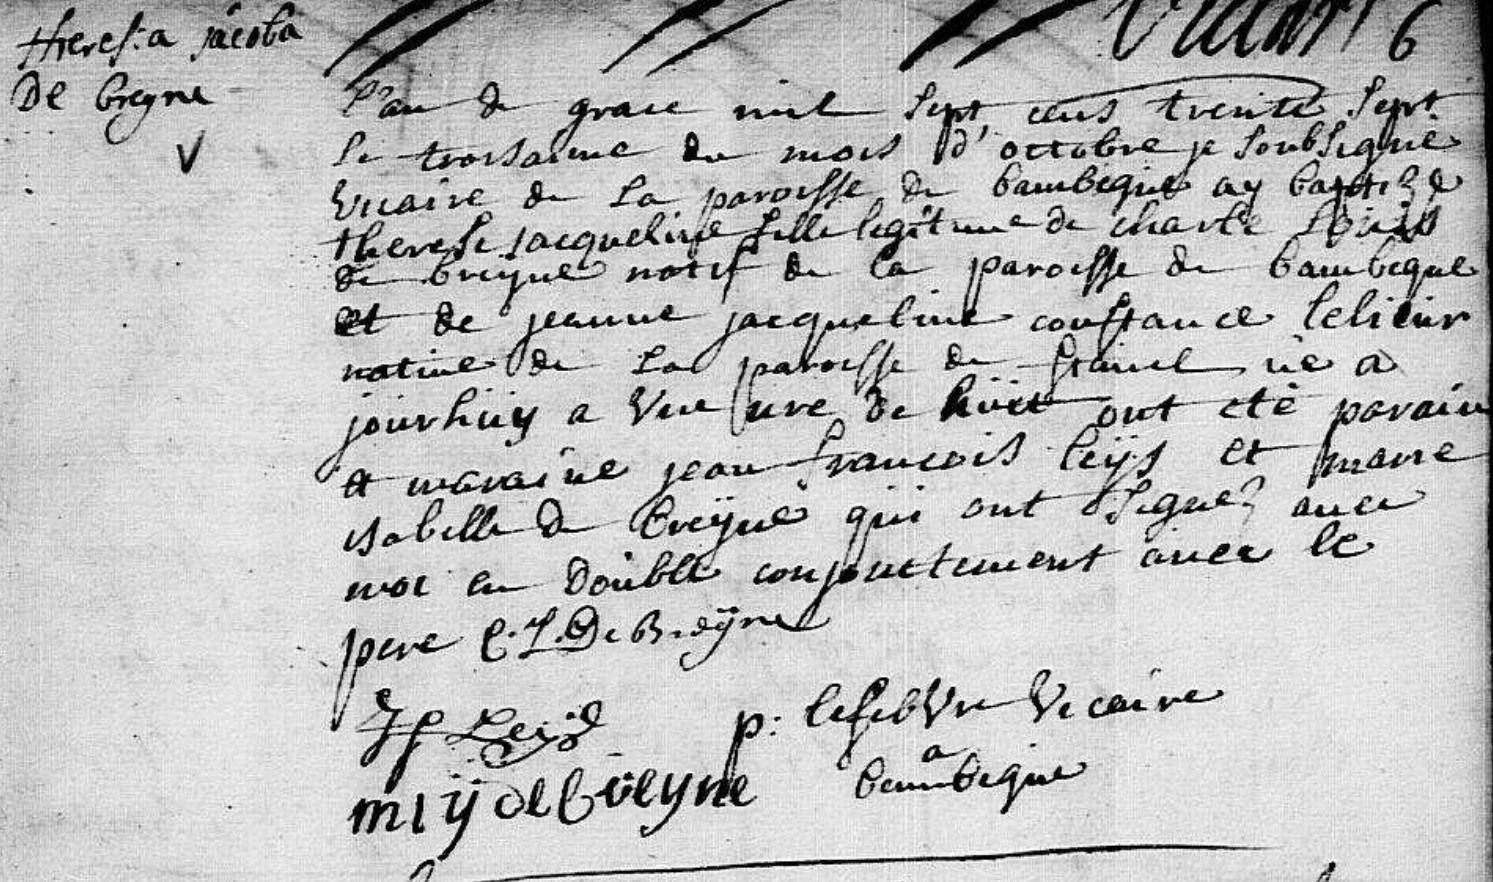 theresia jacoba
De breyne
V
6
L'an de grace mil sept cens trente sept
Le troisaieme du mois d'octobre je soubsigné
Vicaire de la paroisse de bambeque ay baptizé
therese jacqueline fille legitime de charle Louis
de breyne natif de la paroisse de bambeque
et de jeanne jacqueline constance
native de la paroisse de né a
jourhuy a Une ure de ont eté parain
et maraine jean francois leys et marie
isabelle de breyne qui ont signez avec
moi en double conjonttement avec le
pere C.L. De Breÿne
Jf Leys
p: lefebVre Vicaire
a bambeque
mIy de breyne